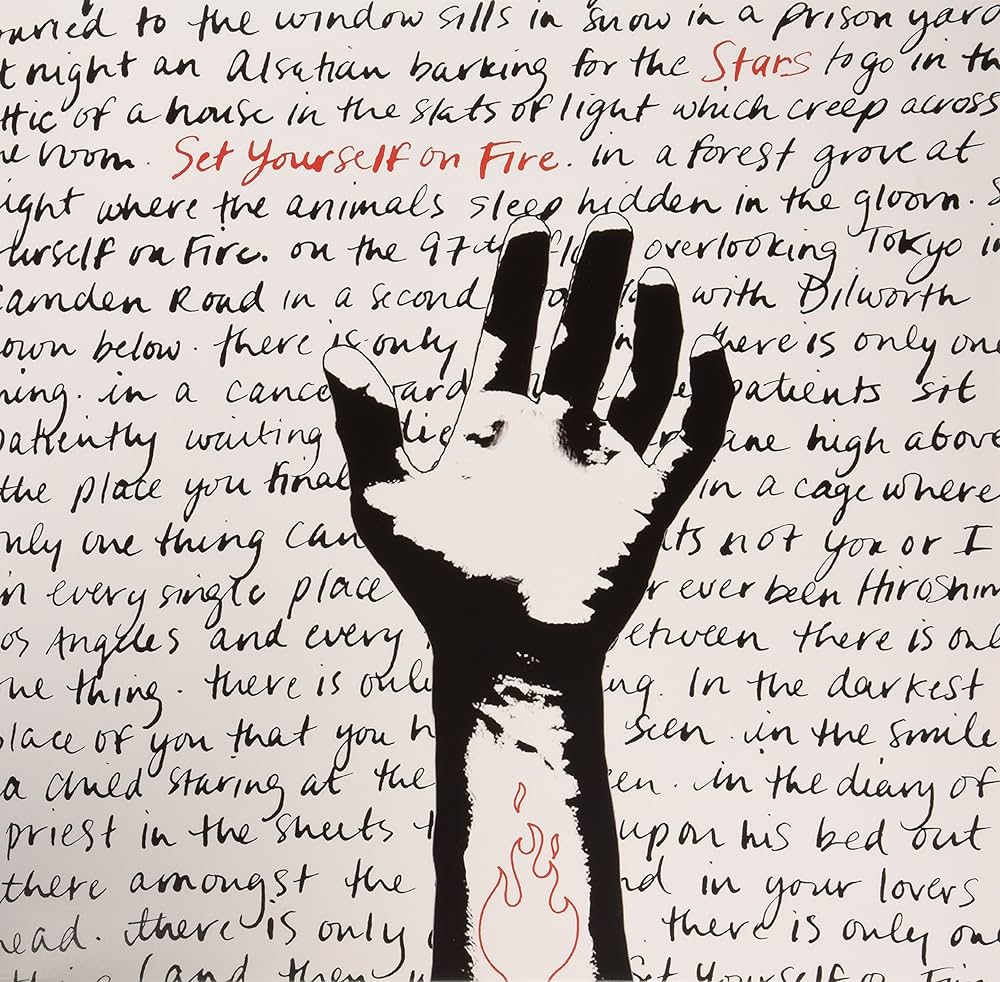 to the window sills in snow in a prison yard
night an Alsatian barking for the Stars to go in th
ttic of a house in the slats of light which creep across
he room. Set Yourself on Fire. in a forest grove at
ight where the animals sleep hidden in the gloom. S
urself on Fire. on the 97th flo overlooking Tokyo in
Camden Road in a second with Dilworth
own below. there is only in there is only one
hing. in a cance ward patients sit
patiently waiting die ane high above
the place you final in a cage where
only one thing can its not you or I
in every single place r ever been Hiroshim
os Angeles and every between there is onl
one thing. there is only ng. In the darkest
place of you that you h seen. in the smile
a child staring at the en. in the diary of
priest in the sheets upon his bed out
there amongst the nd in your lovers
head. there is only there is only one
thing (and then Set Yourself on Fire